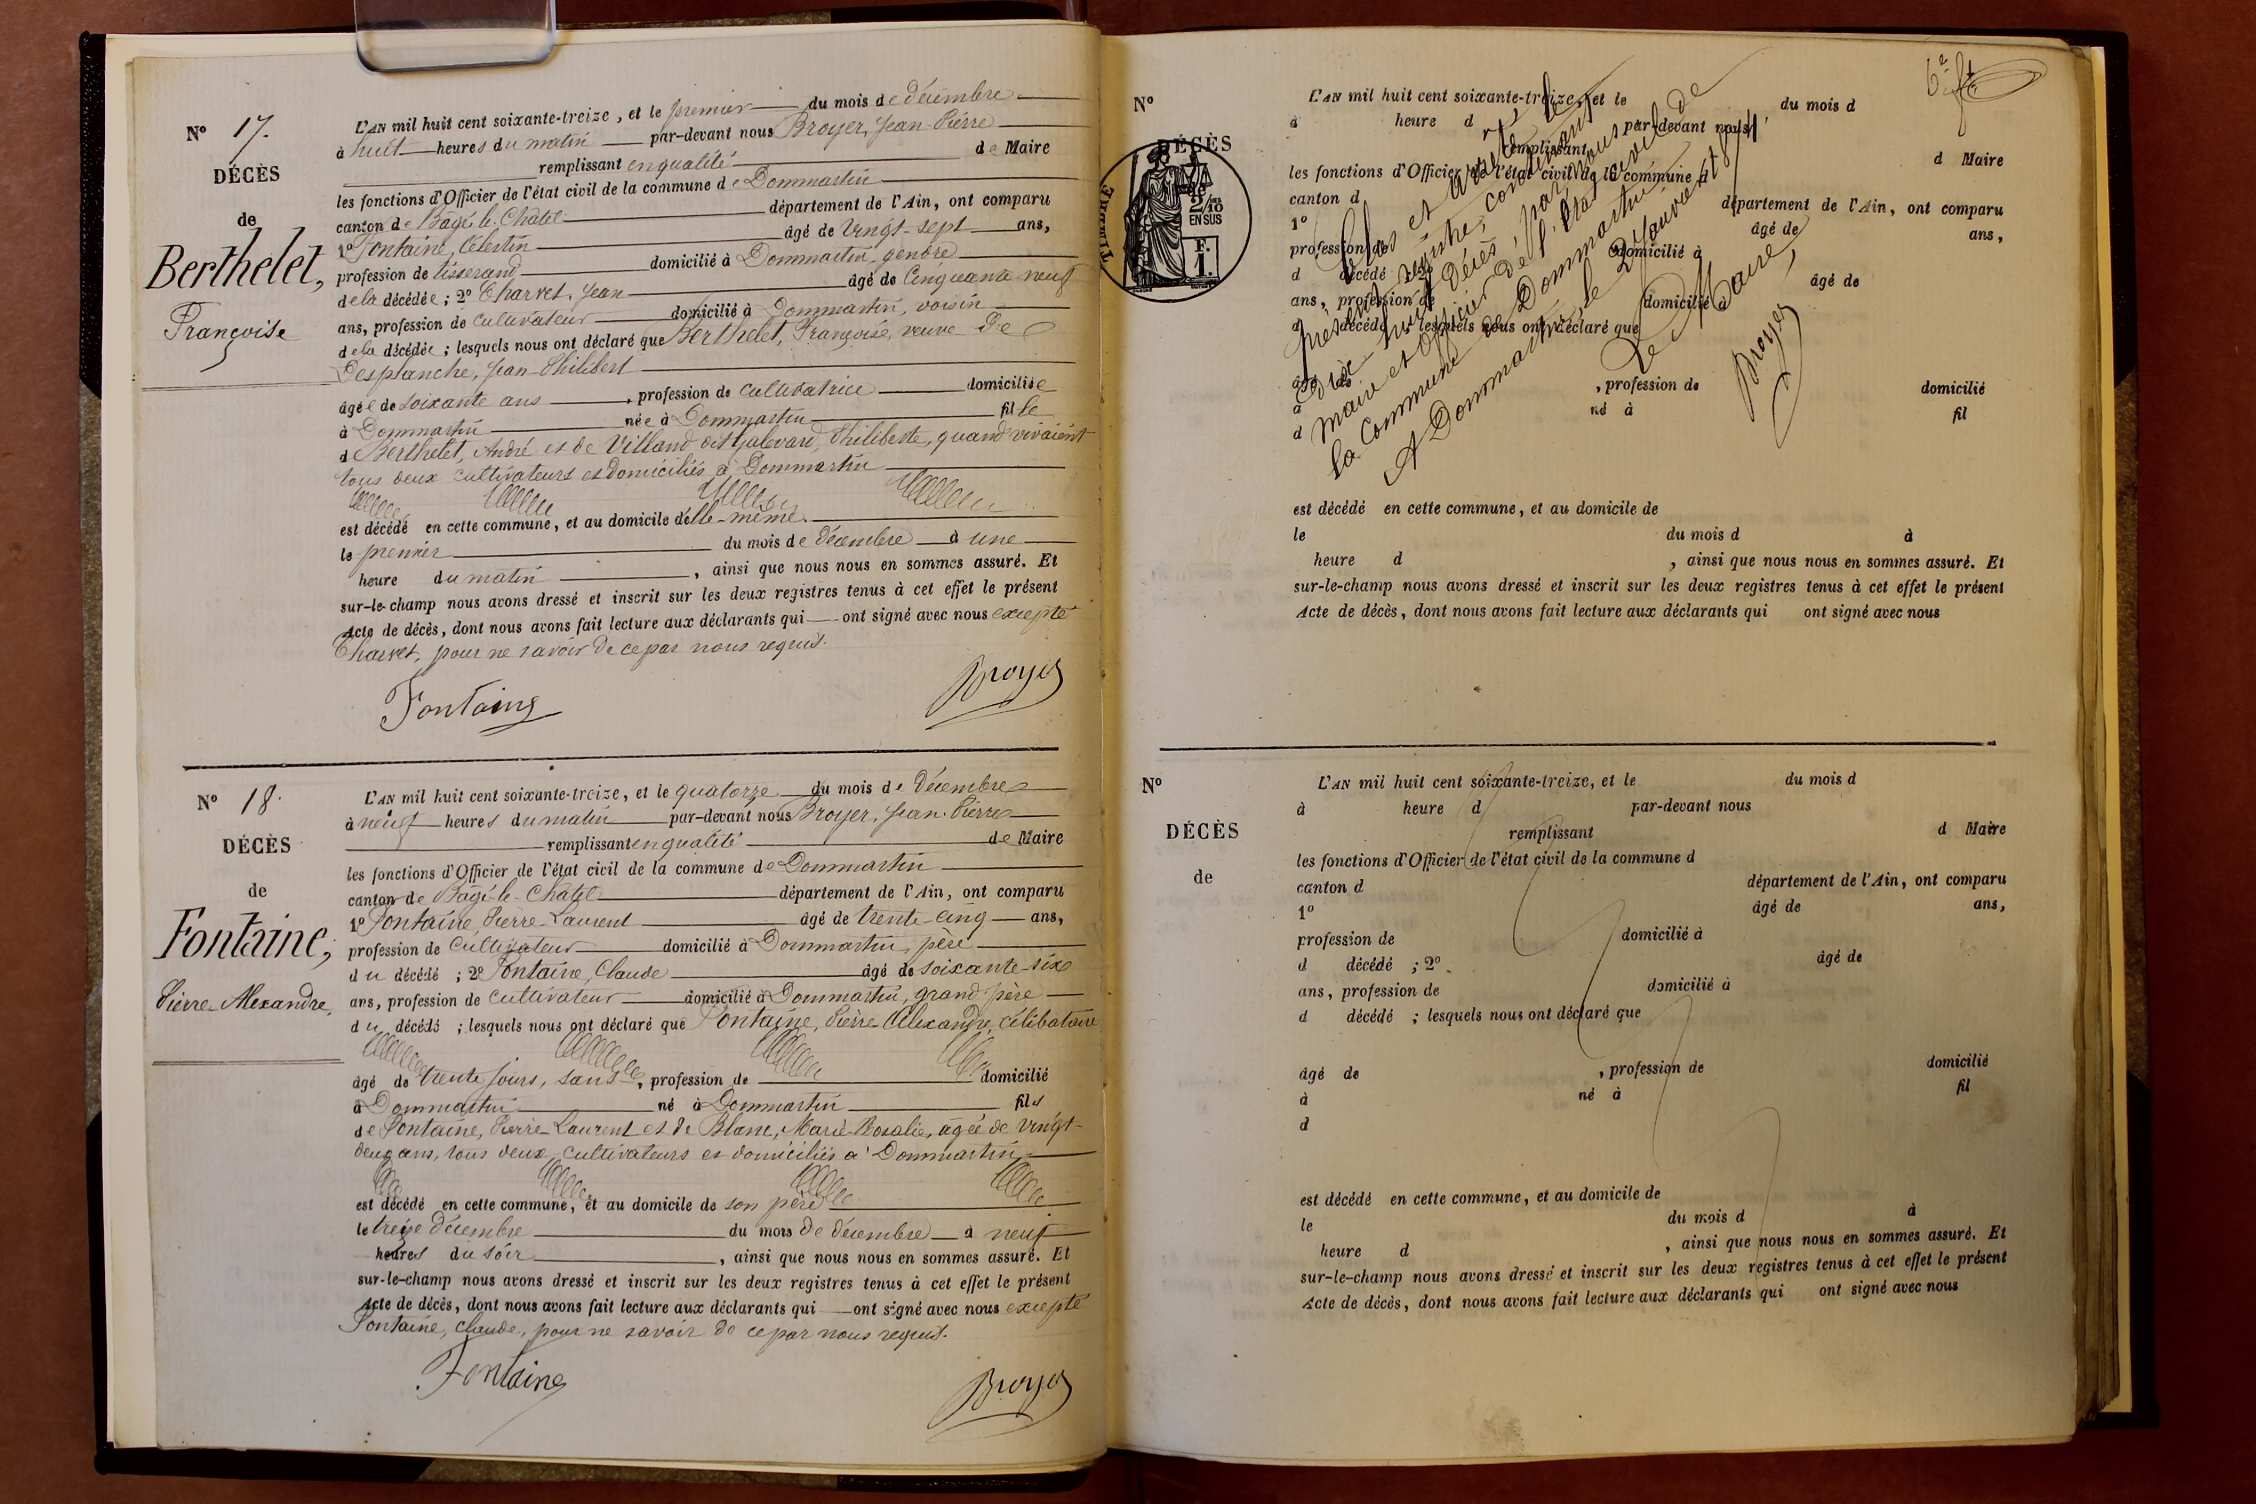 Nº 17.
DÉCÈS
de
Berthelet,
Françoise
L'AN mil huit cent soixante-treize, et le premier du mois de décembre
à huit heures du matin par-devant nous Broyer, Jean-Pierre
remplissant en qualité de Maire
les fonctions d'Officier de l'état civil de la commune de Dommartin
canton de Bâgé-le-Châtel département de l'Ain, ont comparu
1º Fontaine, Célestin âgé de vingt-sept ans,
profession de tisserand domicilié à Dommartin, gendre
de la décédée; 2º Charvet, Jean âgé de cinquante neuf
ans, profession de cultivateur domicilié à Dommartin, voisin
de la décédée; lesquels nous ont déclaré que Berthelet, Françoise, veuve De
Desplanche, Jean-Philibert
âgée de soixante ans, profession de cultivatrice domiciliée
à Dommartin née à Dommartin fille
de Berthelet, André et de Villand dit Philiberte, quand vivaient
tous deux cultivateurs et domiciliés à Dommartin
est décédé en cette commune, et au domicile d'elle-même.
le premier du mois de décembre à une
heure du matin, ainsi que nous nous en sommes assuré. Et
sur-le-champ nous avons dressé et inscrit sur les deux registres tenus à cet effet le présent
Acte de décès, dont nous avons fait lecture aux déclarants qui ont signé avec nous excepté
Charvet, pour ne savoir de ce par nous requis.
Fontaine Broyer
Nº 18.
DÉCÈS
de
Fontaine,
Pierre-Alexandre,
L'AN mil huit cent soixante-treize, et le quatorze du mois de Décembre
à neuf heures du matin par-devant nous Broyer, Jean-Pierre
remplissant en qualité de Maire
les fonctions d'Officier de l'état civil de la commune de Dommartin
canton de Bâgé-le-Châtel département de l'Ain, ont comparu
1º Fontaine, Pierre-Laurent âgé de trente-cinq ans,
profession de cultivateur domicilié à Dommartin, père
du décédé; 2º Fontaine, Claude âgé de soixante-six
ans, profession de cultivateur domicilié à Dommartin, grand père
du décédé; lesquels nous ont déclaré que Fontaine, Pierre-Alexandre, célibataire
âgé de trente jours, sans, profession de domicilié
à Dommartin né à Dommartin fils
de Fontaine, Pierre-Laurent et de Blanc, Marie-Rosalie, agée de vingt-
deux ans, tous deux cultivateurs et domiciliés à Dommartin
est décédé en cette commune, et au domicile de son père
le treize décembre du mois de décembre à neuf
heures du soir, ainsi que nous nous en sommes assuré. Et
sur-le-champ nous avons dressé et inscrit sur les deux registres tenus à cet effet le présent
Acte de décès, dont nous avons fait lecture aux déclarants qui ont signé avec nous excepté
Fontaine, Claude, pour ne savoir de ce par nous requis.
Fontaine Broyer
Nº
DÉCÈS
2/10 EN SUS
F. 1.
L'AN mil huit cent soixante-treize, et le du mois d
à heure d par-devant nous
remplissant d Maire
les fonctions d'Officier de l'état civil de la commune d
canton d département de l'Ain, ont comparu
1º âgé de ans,
profession de domicilié à
d décédé âgé de
ans, profession de domicilié à
d décédé lesquels nous ont déclaré que
, profession de domicilié
à né à fil
d
Clos et arrêté le
présent registre, contenant
dix-huit Décès par nous
maire et officier de l'État civil de
la Commune de Dommartin
A Dommartin, le 2 Janvier
Le Maire,
Broyer
est décédé en cette commune, et au domicile de
le du mois d à
heure d, ainsi que nous nous en sommes assuré. Et
sur-le-champ nous avons dressé et inscrit sur les deux registres tenus à cet effet le présent
Acte de décès, dont nous avons fait lecture aux déclarants qui ont signé avec nous
Nº
DÉCÈS
de
L'AN mil huit cent soixante-treize, et le du mois d
à heure d par-devant nous
remplissant d Maire
les fonctions d'Officier de l'état civil de la commune d
canton d département de l'Ain, ont comparu
1º âgé de ans,
profession de domicilié à
d décédé; 2º âgé de
ans, profession de domicilié à
d décédé; lesquels nous ont déclaré que
âgé de, profession de domicilié
à né à fil
d
est décédé en cette commune, et au domicile de
le du mois d à
heure d, ainsi que nous nous en sommes assuré. Et
sur-le-champ nous avons dressé et inscrit sur les deux registres tenus à cet effet le présent
Acte de décès, dont nous avons fait lecture aux déclarants qui ont signé avec nous